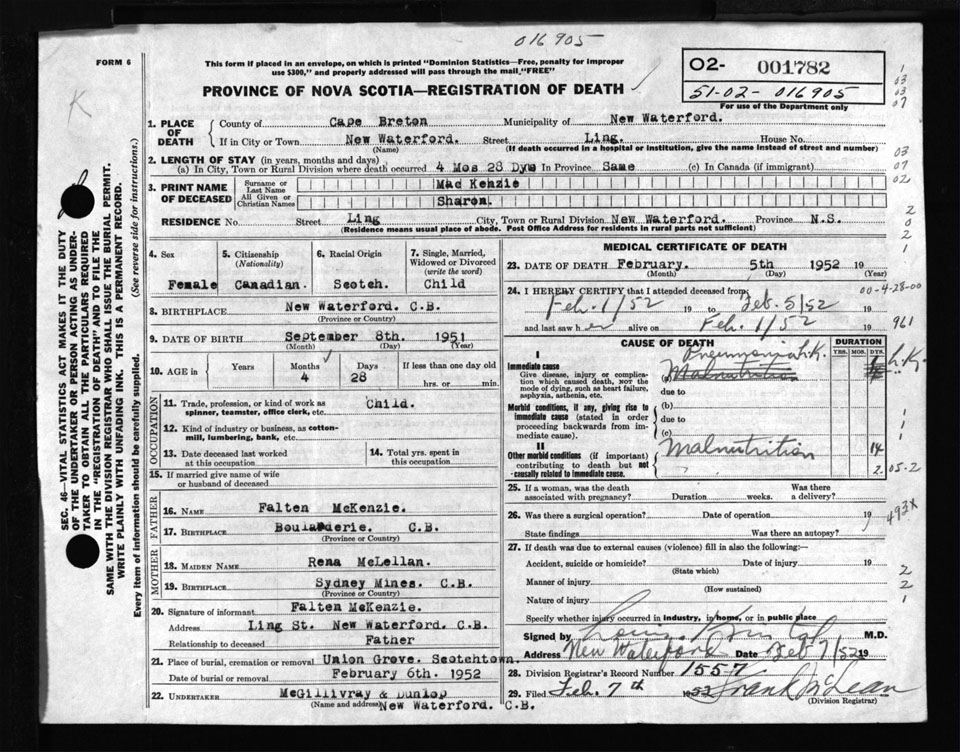 016905
FORM 6
This form if placed in an envelope, on which is printed "Dominion Statistics—Free, penalty for improper
use $300," and properly addressed will pass through the mail "FREE"
PROVINCE OF NOVA SCOTIA—REGISTRATION OF DEATH
O2- 001782
51-02- 016905
For use of the Department only
K
SEC. 46—VITAL STATISTICS ACT MAKES IT THE DUTY
OF THE UNDERTAKER OR PERSON ACTING AS UNDER-
TAKER TO OBTAIN ALL THE PARTICULARS REQUIRED
IN THE "REGISTRATION OF DEATH" AND TO FILE THE
SAME WITH THE DIVISION REGISTRAR WHO SHALL ISSUE THE BURIAL PERMIT.
WRITE PLAINLY WITH UNFADING INK. THIS IS A PERMANENT RECORD.
Every item of information should be carefully supplied. (See reverse side for instructions.)
1. PLACE OF DEATH { County of Cape Breton Municipality of New Waterford.
If in City or Town New Waterford. Street Ling. House No.
(Name) (If death occurred in a hospital or institution, give the name instead of street and number)
2. LENGTH OF STAY (in years, months and days)
(a) In City, Town or Rural Division where death occurred 4 Mos 28 Dys In Province Same (c) In Canada (if immigrant)
3. PRINT NAME OF DECEASED { Surname or Last Name Mac Kenzie
All Given or Christian Names Sharon.
RESIDENCE No. Street Ling City, Town or Rural Division New Waterford. Province N.S.
(Residence means usual place of abode. Post Office Address for residents in rural parts not sufficient)
4. Sex
Female
5. Citizenship
(Nationality)
Canadian.
6. Racial Origin
Scotch.
7. Single, Married,
Widowed or Divorced
(write the word)
Child
8. BIRTHPLACE New Waterford. C.B.
(Province or Country)
9. DATE OF BIRTH September 8th. 1951
(Month) (Day) (Year)
10. AGE in { Years Months Days If less than one day old
4 28 hrs. or min.
OCCUPATION
11. Trade, profession, or kind of work as
spinner, teamster, office clerk, etc. Child.
12. Kind of industry or business, as cotton-
mill, lumbering, bank, etc.
13. Date deceased last worked
at this occupation
14. Total yrs. spent in
this occupation
15. If married give name of wife
or husband of deceased
FATHER
16. NAME Falten McKenzie.
17. BIRTHPLACE Boularderie. C.B.
(Province or Country)
MOTHER
18. MAIDEN NAME Rena McLellan.
19. BIRTHPLACE Sydney Mines. C.B.
(Province or Country)
20. Signature of informant Falten McKenzie.
Address Ling St. New Waterford. C.B.
Relationship to deceased Father
21. Place of burial, cremation or removal Union Grove. Scotchtown.
Date of burial or removal February 6th. 1952
22. UNDERTAKER McGillivray & Dunlop
(Name and address) New Waterford. C.B.
MEDICAL CERTIFICATE OF DEATH
23. DATE OF DEATH February. 5th 1952 19
(Month) (Day) (Year)
24. I HEREBY CERTIFY that I attended deceased from:
Feb. 1/52 19 to Feb. 5/52
and last saw her alive on Feb. 1/52 19
CAUSE OF DEATH DURATION
YRS. MOS. DYS.
I
Immediate cause
Give disease, injury or complica-
tion which caused death, not the
mode of dying, such as heart failure,
asphyxia, asthenia, etc.
Pneumonia L.K.
(a) Malnutrition
due to
Morbid conditions, if any, giving rise to
immediate cause (stated in order
proceeding backwards from im-
mediate cause).
(b)
due to
(c)
II
Other morbid conditions (if important)
contributing to death but not
causally related to immediate cause.
Malnutrition 14
2
25. If a woman, was the death
associated with pregnancy? Duration weeks. Was there
a delivery?
26. Was there a surgical operation? Date of operation 19
State findings Was there an autopsy?
27. If death was due to external causes (violence) fill in also the following:—
Accident, suicide or homicide? Date of injury 19
(State which)
Manner of injury
(How sustained)
Nature of injury
Specify whether injury occurred in industry, in home, or in public place
Signed by M.D.
Address New Waterford Date Feb 7/52 19
28. Division Registrar's Record Number 1557
29. Filed Feb. 7th 1952 Frank McLean
(Division Registrar)
1
03
03
07
03
07
02
2
2
1
00-4-28-00
961
L.K.
1
1
05-2
493X
2
2
1